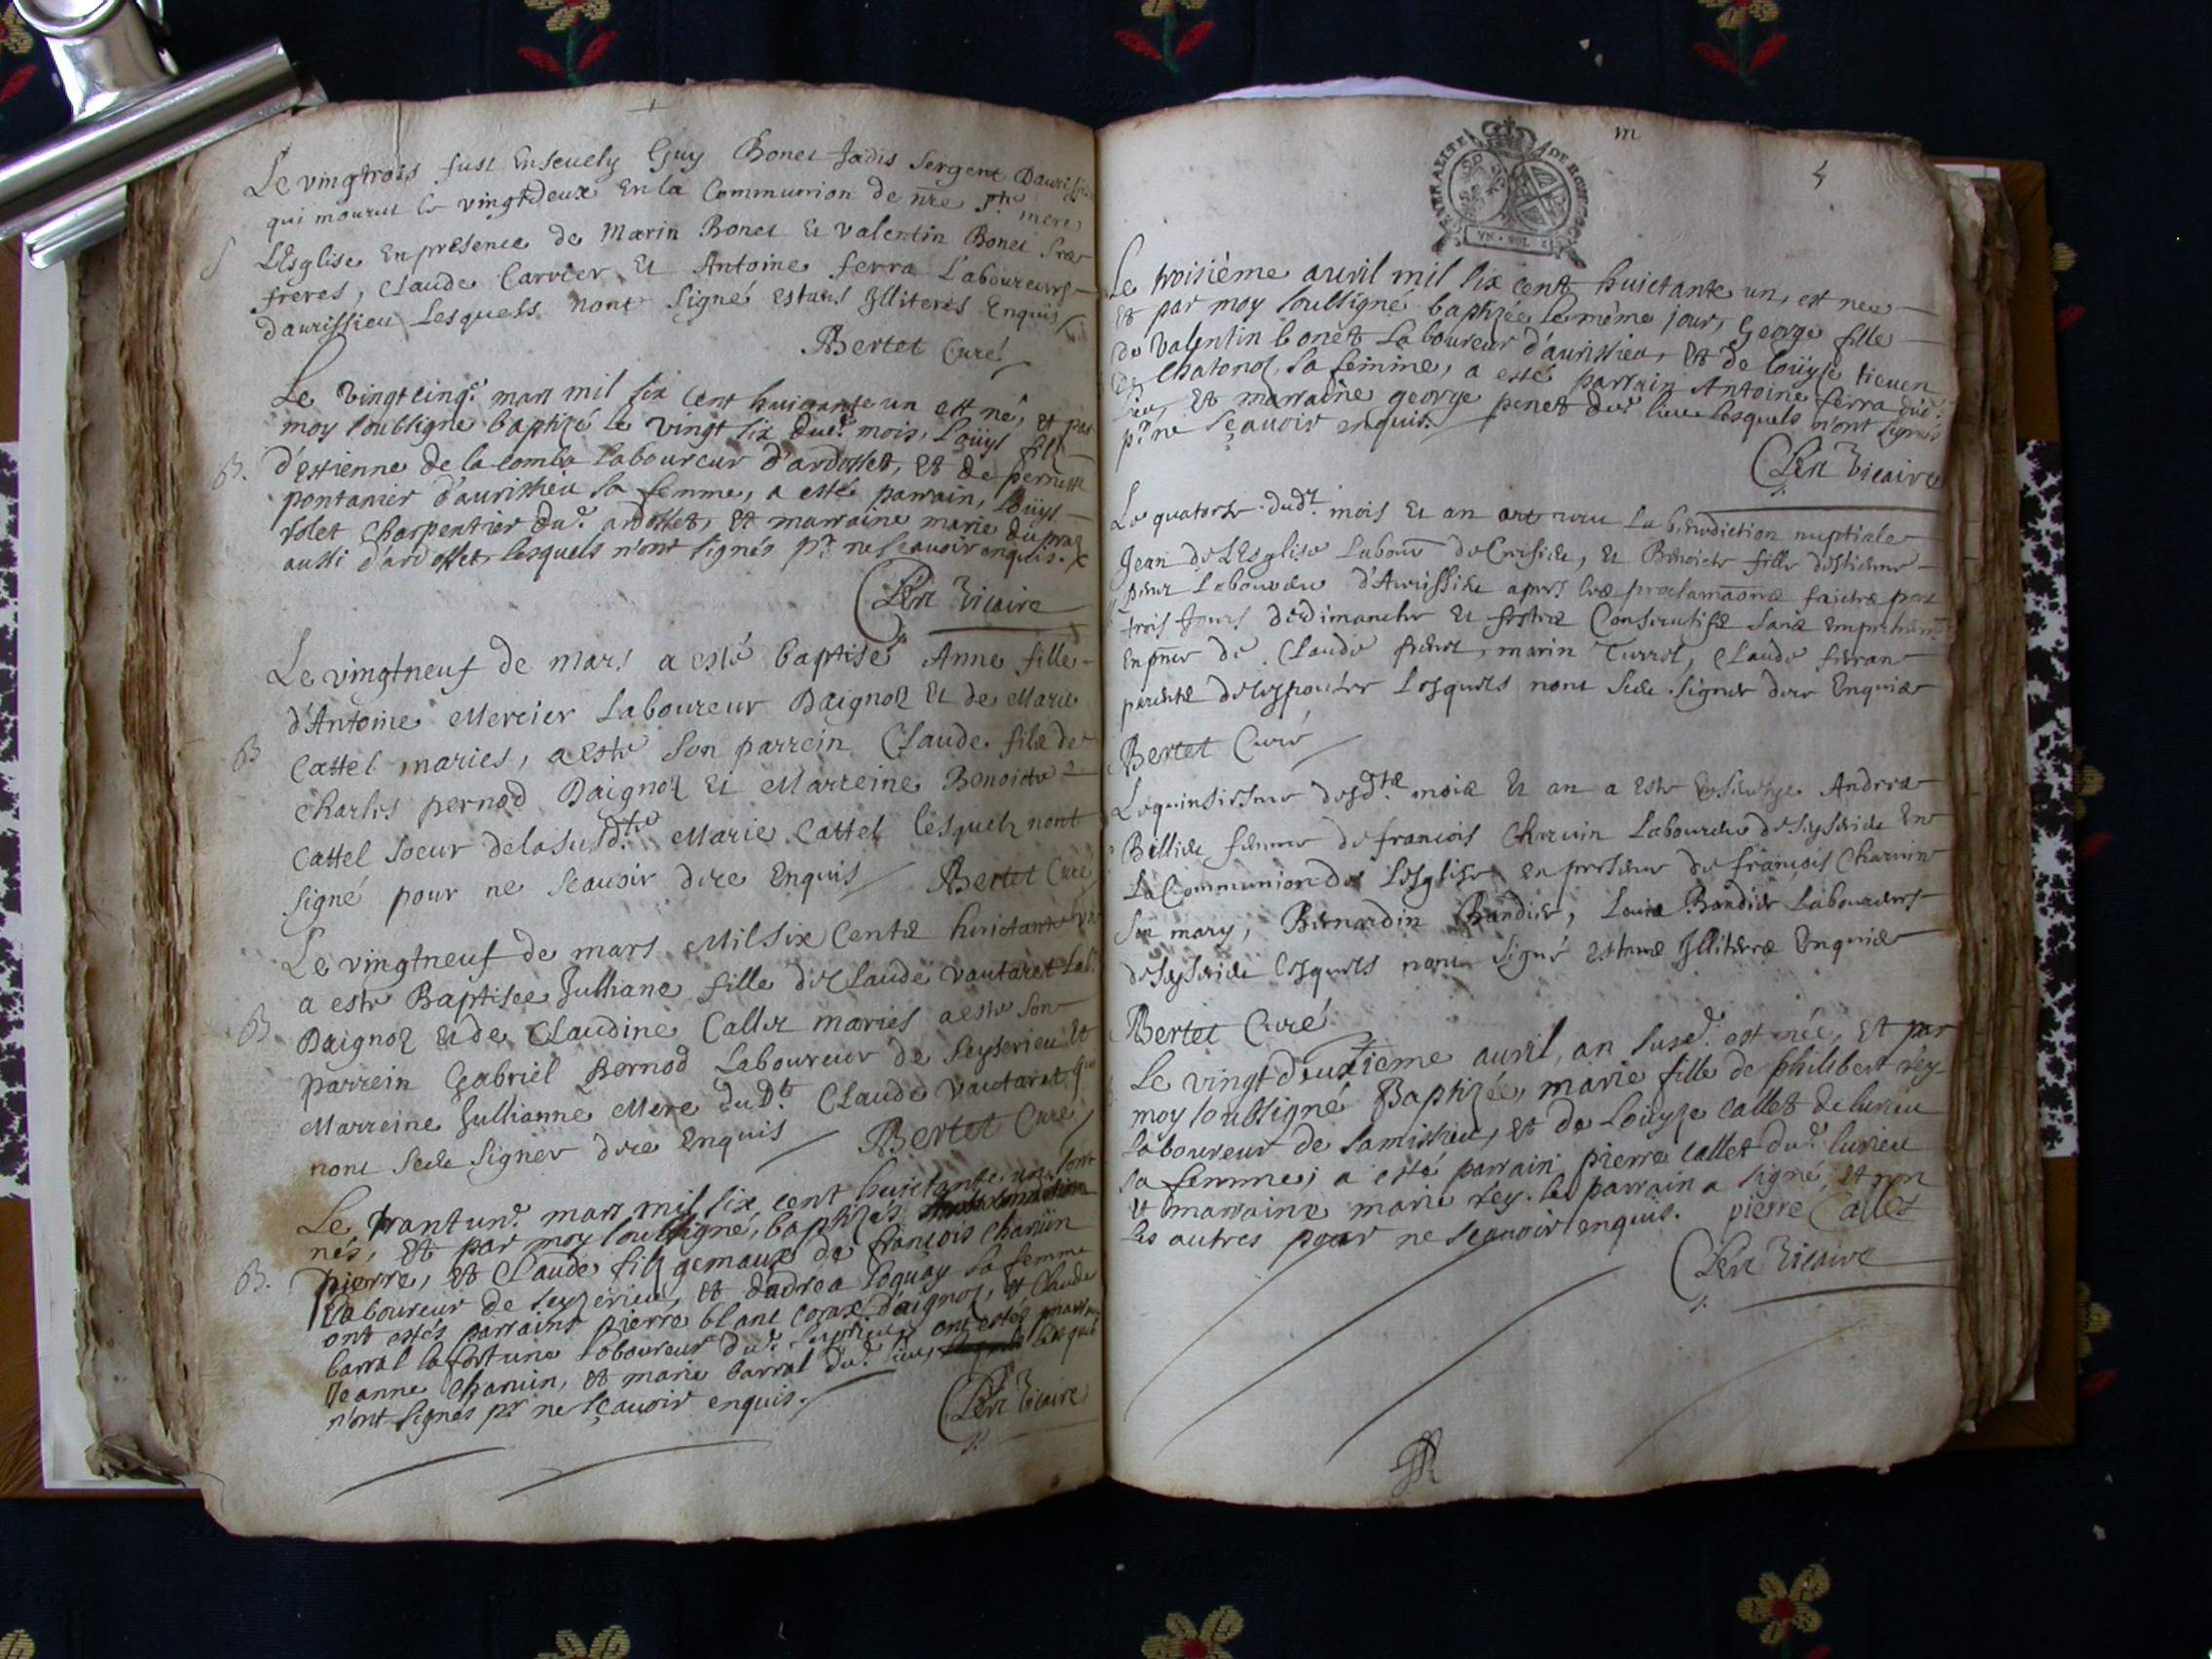 Le vingtrois fust Enseuely Guy Bonet Jadis Sergent
qui mourut le vingtdeux En la Communion de nre Ste mere
S LEsglise En presence de Marin Bonet Et valentin Bonet
freres, Claude Carrier Et Antoine ferra Laboureurs
d'aurissieu Lesquels nont Signé Estans Jlliteres Enquis
Bertet Curé
Le vingt cinq.e mars mil six cent huictante un est né, et par
moy soubsigné baptizé le vingt six dud. mois, Loüys fils
B. d'estienne de la combe laboureur d'ardosset, et de pernette
pontanier d'aurissieu sa femme, a esté parrain, Loüys
rolet Charpentier dud. ardosset, et marraine marie du praz
aussi d'ardosset, lesquels n'ont signés pr. ne scauoir enquis.
Vicaire
Le vingtneuf de mars a esté baptisé Anne fille
d'Antoine Mercier Laboureur Daignoz Et de Marie
B Cattel maries, a este son parrein Claude filz de
Charles pernod Daignoz Et Marreine Benoicte
Cattel soeur de la susd.te Marie Cattel lesquelz nont
signé pour ne scauoir dece Enquis Bertet Curé
Le vingtneuf de mars Mil six Cents huictante un
a este Baptisee Julliane fille de Claude vautaret Lab.
B Daignoz Et de Claudine Callet maries a este son
parrein Gabriel Bernod Laboureur de Seyserieu Et
Marreine Jullianne Mere dudt. Claude vautaret qui
nont sceu signer dece Enquis Bertet Curé
Le trantun.e mars mil six cent huictante un, sont
nés, et par moy soubsigné, baptizés
B. pierre, et Claude filz gemaux de françois Charuin
laboureur de seyzerieu, et d'adrea loguay sa femme
ont estés parrains pierre blanc corax d'aignoz, et Claude
barral la fortune laboureur dud. seyzerieu, ont estés marraines
Jeanne Charuin, et marie barral dud. lieu, lesquels
n'ont signés pr ne scauoir enquis.
Vicaire
m
4
VN SOL
Le troisième auril mil six cent huictante un, est nee
et par moy soubsigné baptizée le même jour, George fille
de valentin bonet laboureur d'aurissieu, et de Loüyse
Chatonoz, sa femme, a esté parrain Antoine ferra dud.
lieu, et marraine george penet dud. lieu lesquels n'ont signés
pr. ne sçauoir enquis.
Vicaire
Le quatorse dud.t mois Et an ont receu La benediction nuptiale
Jean de LEsglise Labour. de, Et Benoicte fille destienne
Laboureur d'Aurissieu apres les proclamaons faictes par
trois Jours de dimanche Et festes Consecutifs sans Empechem.t
En pnce de Claude, marin Turrel, Claude
parents desespouses lesquels nont sceu signer dece Enquis
Bertet Curé
Le quinsiesme desd.ts mois Et an a este Enseuelye Andrea
Billiet femme de francois Charuin Laboureur de Seyserieu En
La Communion de LEsglise En presence de francois Charuin
son mary, Bernardin Bandier, Louis Bandier Laboureurs
de Seyserieu lesquels nont signé Estans Jlliteres Enquis
Bertet Curé
Le vingt deuxieme auril, an susd. est née, et par
moy soubsigné Baptizée, marie fille de philibert rey
laboureur de samissieu, et de Loüyse Callet de lurieu
sa femme, a esté parrain pierre Callet dud. lurieu
et marraine marie rey. le parrain a signé, et non
les autres pour ne scauoir enquis. pierre Callet
Vicaire